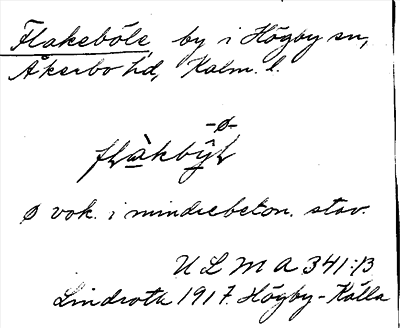 Flakeböle, by i Högby sn,
Åkerbo hd, Kalm. l.
-ø-
flàkbÿl
ø vok. i mindrebeton. stav.
ULMA 341:13
Lindroth 1917. Högby-Källa